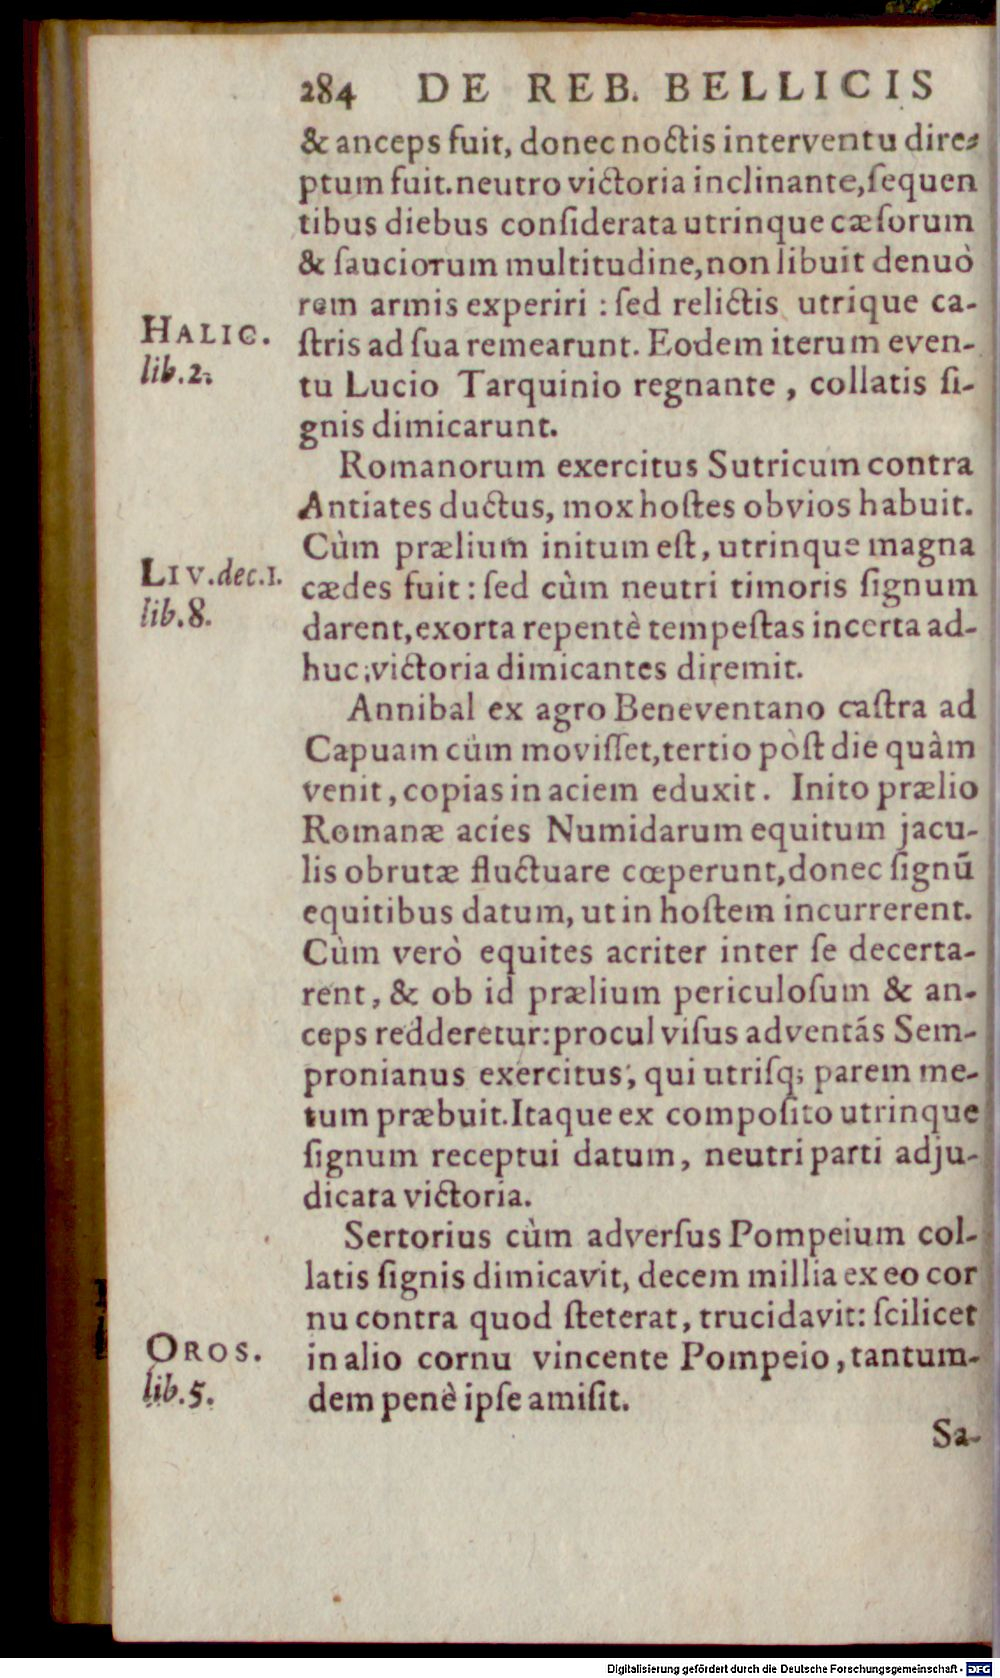 284 DE REB. BELLICIS
& anceps fuit, donec noctis interventu dire-
ptum fuit. neutro victoria inclinante, ſequen
tibus diebus conſiderata utrinque cæſorum
& ſauciorum multitudine, non libuit denuò
rem armis experiri : ſed relictis utrique ca-
HALIC.
lib. 2.
ſtris ad ſua remearunt. Eodem iterum even-
tu Lucio Tarquinio regnante, collatis ſi-
gnis dimicarunt.
Romanorum exercitus Sutricum contra
Antiates ductus, mox hoſtes obvios habuit.
Cùm prælium initum eſt, utrinque magna
LIV. dec. 1.
lib. 8.
cædes fuit : ſed cùm neutri timoris ſignum
darent, exorta repentè tempeſtas incerta ad-
huc; victoria dimicantes diremit.
Annibal ex agro Beneventano caſtra ad
Capuam cùm moviſſet, tertio pòſt die quàm
venit, copias in aciem eduxit. Inito prælio
Romanæ acies Numidarum equitum jacu-
lis obrutæ fluctuare cœperunt, donec ſignū
equitibus datum, ut in hoſtem incurrerent.
Cùm verò equites acriter inter ſe decerta-
rent, & ob id prælium periculoſum & an-
ceps redderetur: procul viſus adventãs Sem-
pronianus exercitus, qui utriſq; parem me-
tum præbuit. Itaque ex compoſito utrinque
ſignum receptui datum, neutri parti adju-
dicata victoria.
Sertorius cùm adverſus Pompeium col-
latis ſignis dimicavit, decem millia ex eo cor
nu contra quod ſteterat, trucidavit: ſcilicet
OROS.
lib. 5.
in alio cornu vincente Pompeio, tantum-
dem penè ipſe amiſit.
Sa-
Digitalisierung gefördert durch die Deutsche Forschungsgemeinschaft - DFG